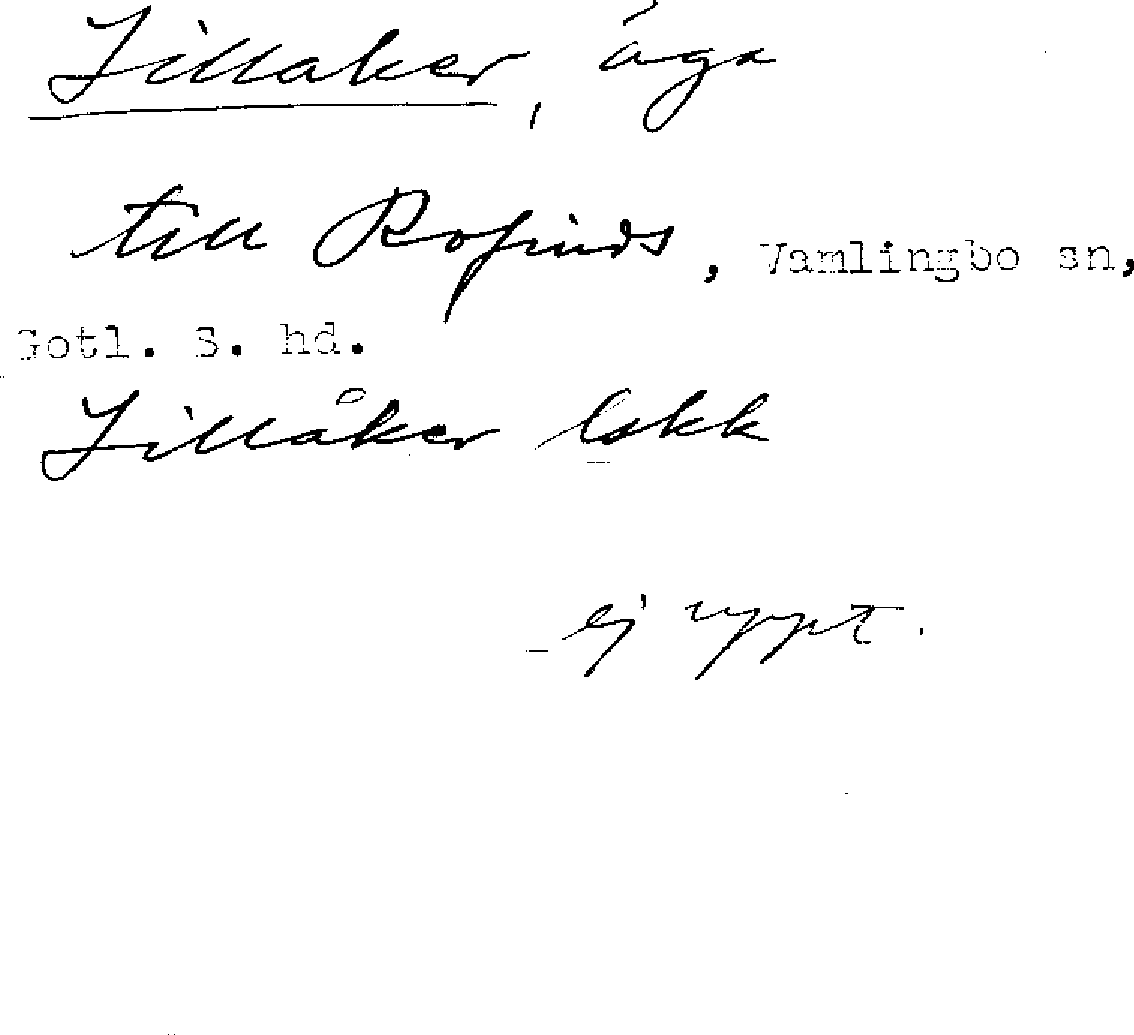 Lillaker, äga
till Rofinds, Vamlingbo sn,
Gotl. S. hd.
Lillåker
ej uppt.